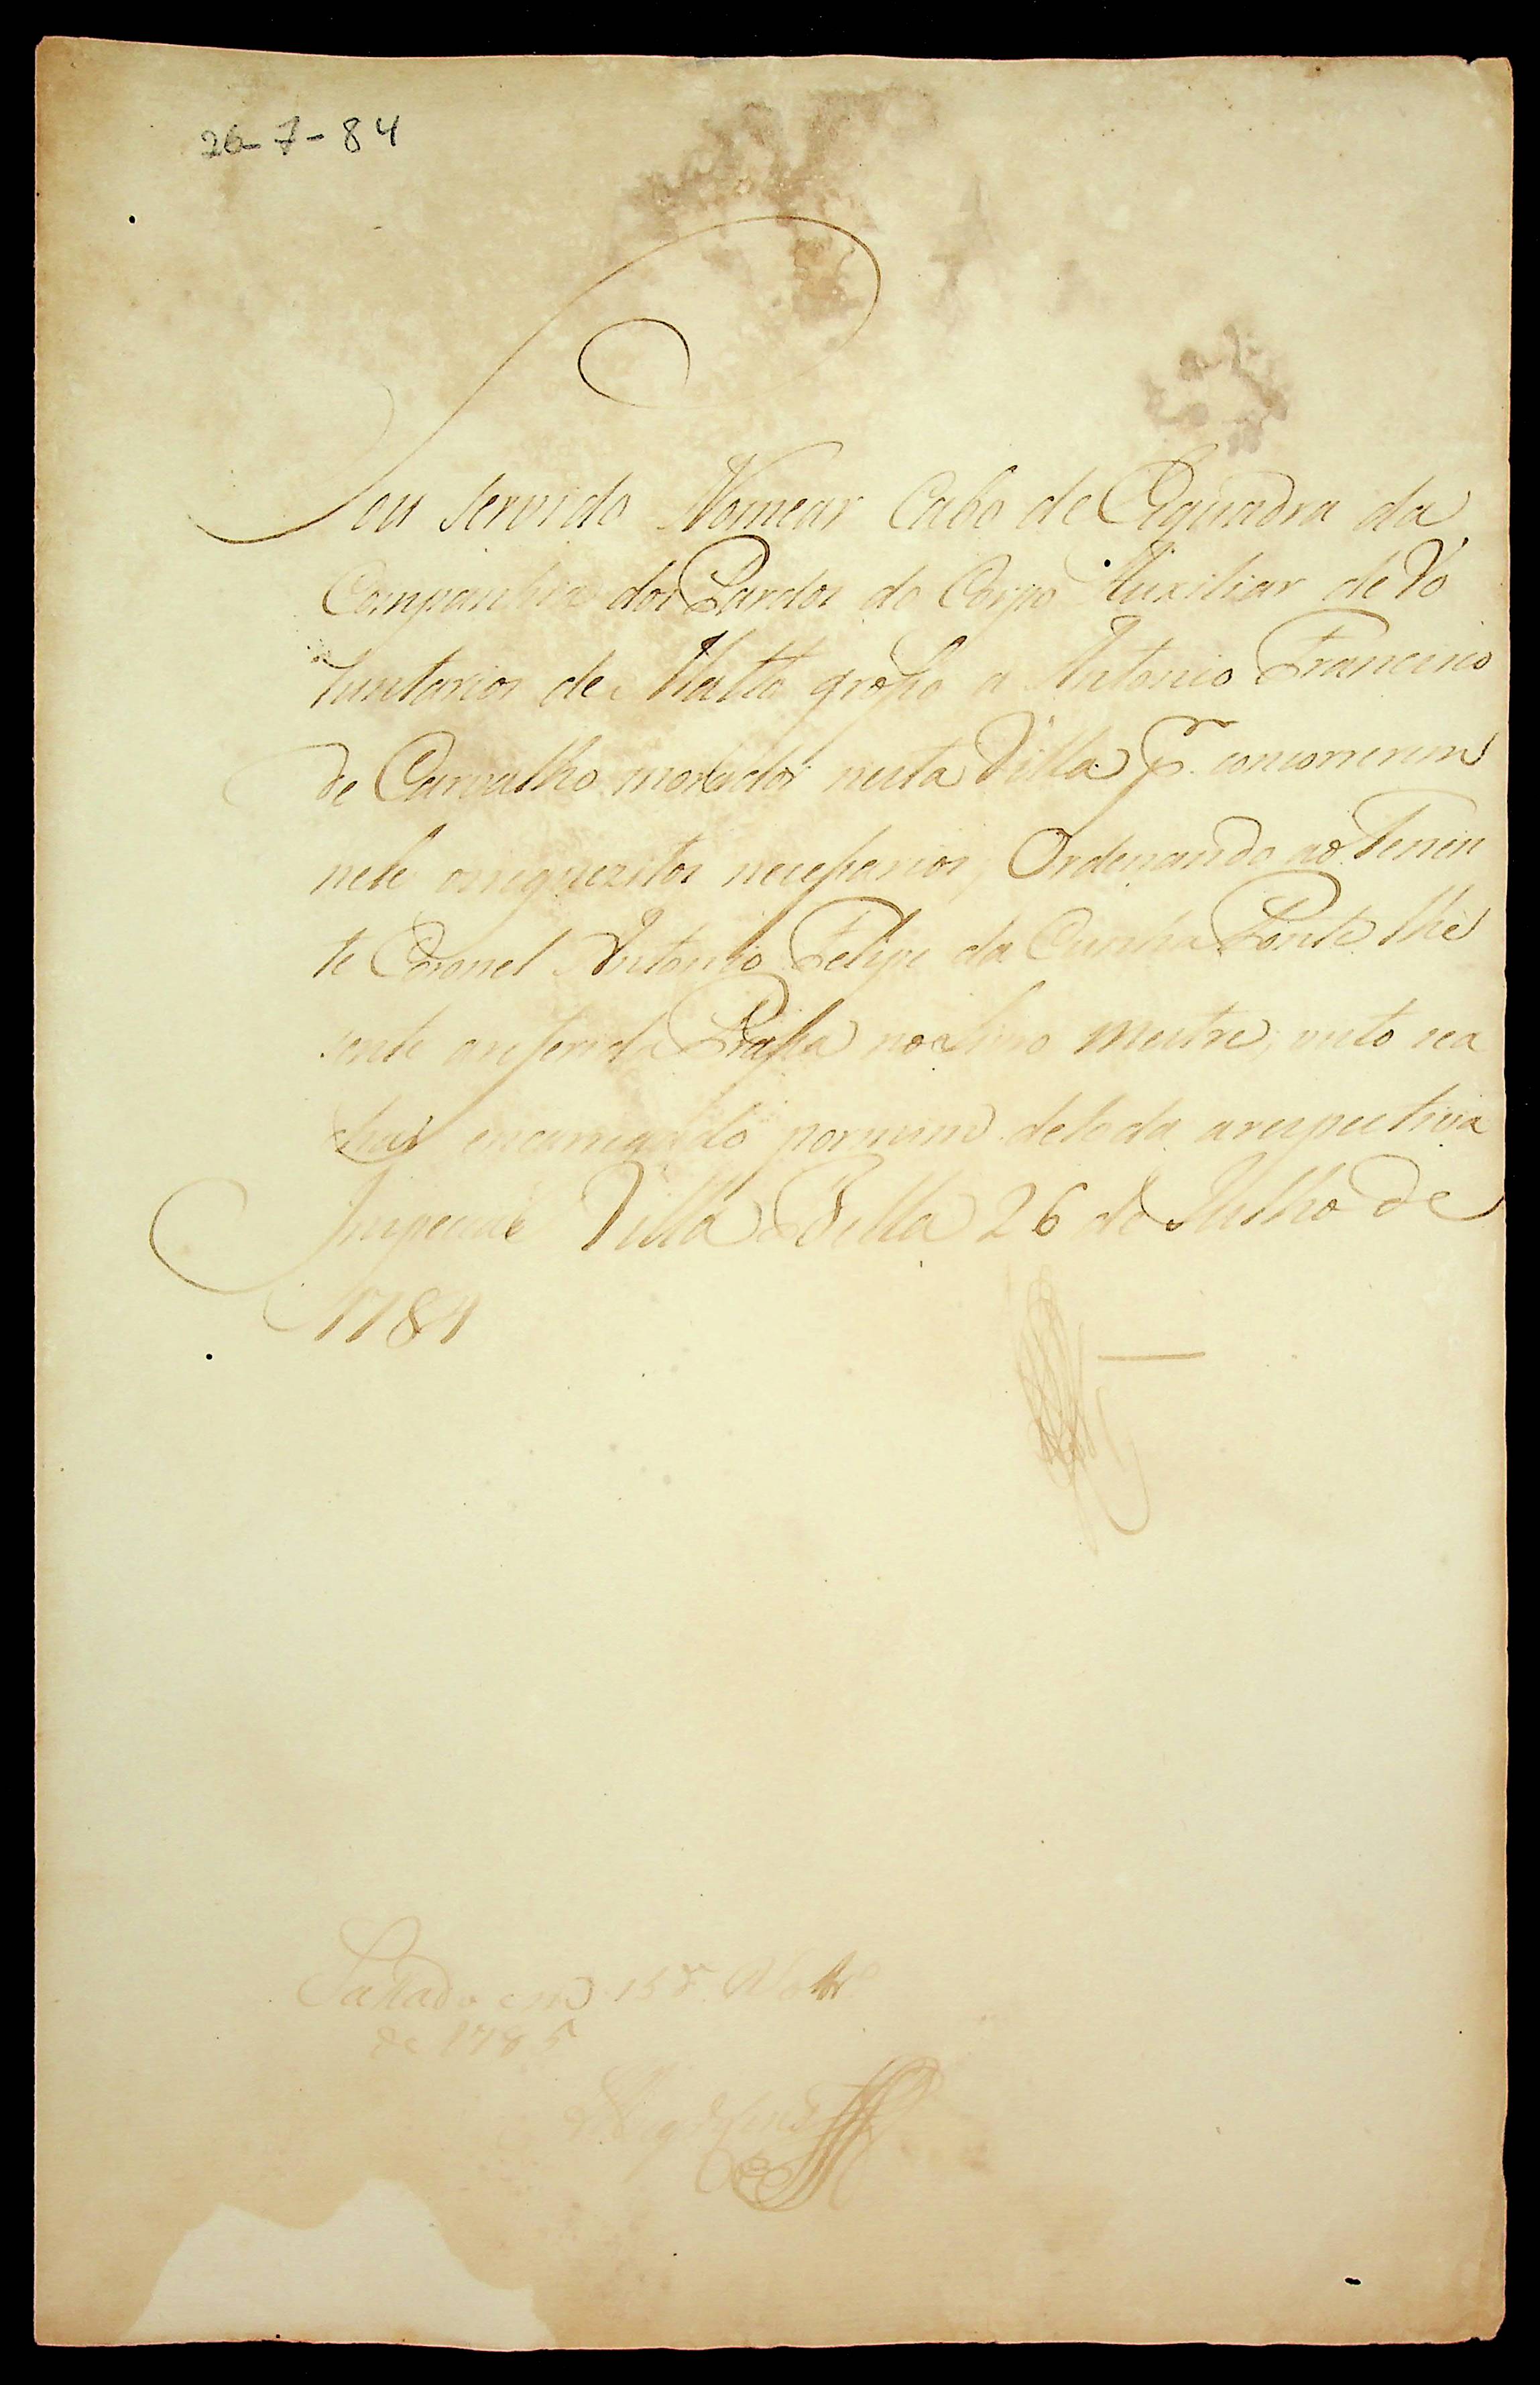 26-7-84
Sou servido Nomear Cabo de Esquadra da
Companhia dos Pardos do Corpo Auxiliar de Vo
luntarios de Matto groſso a Antonio Francisco
de Carvalho morador nesta Villa p.r concorrerem
nele os requezitos neceſsarios, Ordenando ao Tenen
te Coronel Antonio Felipe da Cunha Ponte lhe
sente a referida Praſsa no Livro Mestre, visto se a
char encarregado por mim de toda a respectiva
Inspecsaõ Villa Bella 26 de Julho de
1784
em 15 de
de 1785